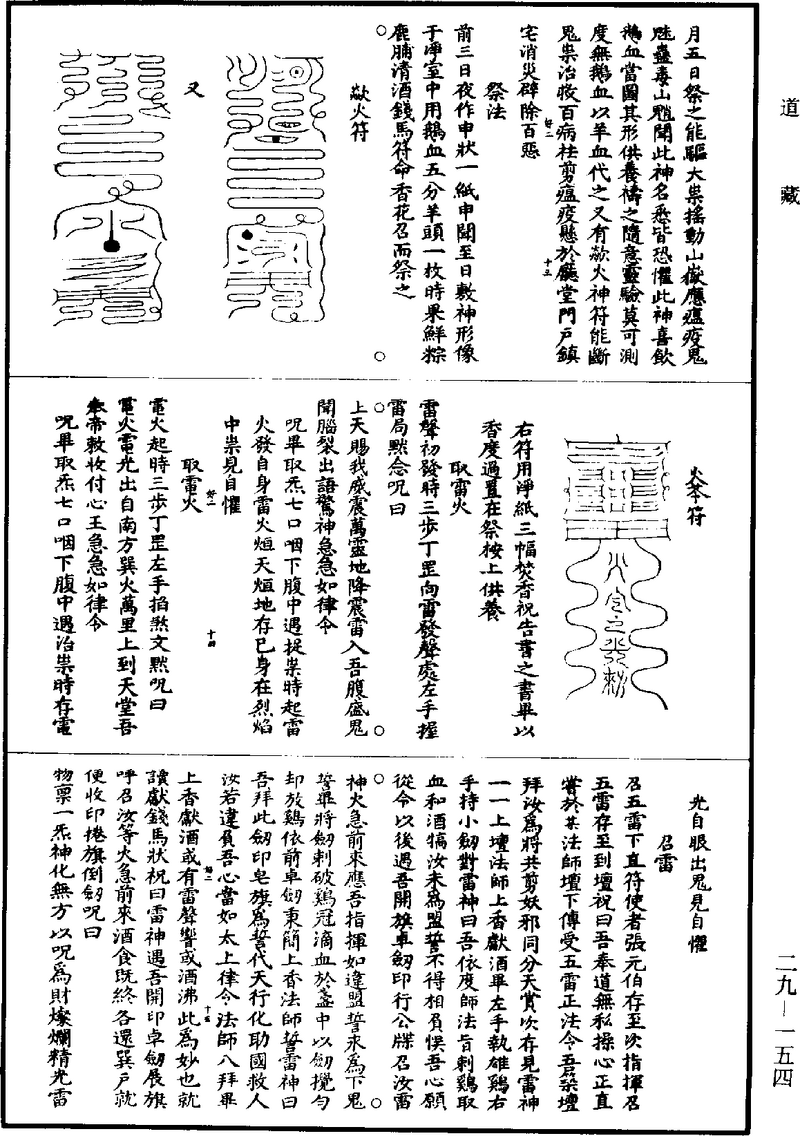 道藏
月五日祭之能驅大祟搖動山嶽應瘟疫鬼
魅蠱毒山魈聞此神名悉皆恐懼此神喜飲
鵝血當圖其形供養禱之隨意靈驗莫可測
度無鵝血以羊血代之又有歘火神符能斷
鬼祟治救百病祛剪瘟疫懸於廳堂門戶鎮
宅消災辟除百惡
祭法
前三日夜作申狀一紙申聞至日敷神形像
于淨室中用鵝血五分羊頭一枚時果鮮粽
鹿脯清酒錢馬符命香花召而祭之
歘火符
又
火本符
右符用淨紙三幅焚香祝告書之書畢以
香度過置在祭桉上供養
取雷火
雷聲初發時三步丁罡向雷發聲處左手握
雷局默念呪曰
上天賜我威震萬靈地降震雷入吾腹盛鬼
聞腦裂出語驚神急急如律令
呪畢取炁七口咽下腹中遇捉祟時起雷
火發自身雷火烜天烜地存已身在烈焰
中祟見自懼
取電火
電火起時三步丁罡左手掐煞文默呪曰
電火電光出自南方巽火萬里上到天堂吾
奉帝敕收付心王急急如律令
呪畢取炁七口咽下腹中遇治祟時存電
光自眼出鬼見自懼
召雷
召五雷下直符使者張元伯存至次指揮召
五雷存至到壇祝曰吾奉道無私操心正直
嘗於某法師壇下傳受五雷正法令吾築壇
拜汝為將共剪妖邪同分天賞次存見雷神
一一上壇法師上香獻酒畢左手執雄鷄右
手持小劒對雷神曰吾依度師法旨刺鷄取
血和酒犒汝來為盟誓不得相負悞吾心願
從今以後遇吾開旗卓劒印行公牒召汝雷
神火急前來應吾指揮如違盟誓來為下鬼
誓畢將劒刺破鷄冠滴血於盞中以劒攪勻
却放鷄依前卓劒東簡上香法師誓雷神曰
吾拜此劒印皂旗為誓代天行化助國救人
汝若違負吾心當如太上律令法師八拜畢
上香獻酒或有雷聲響或酒沸此為妙也就
讀獻錢馬狀祝曰雷神遇吾開印卓劒展旗
呼召汝等火急前來酒食既終各還巽戶就
便收印捲旗倒劒呪曰
物禀一炁神化無方以呪為財燦爛精光雷
二九—一五四